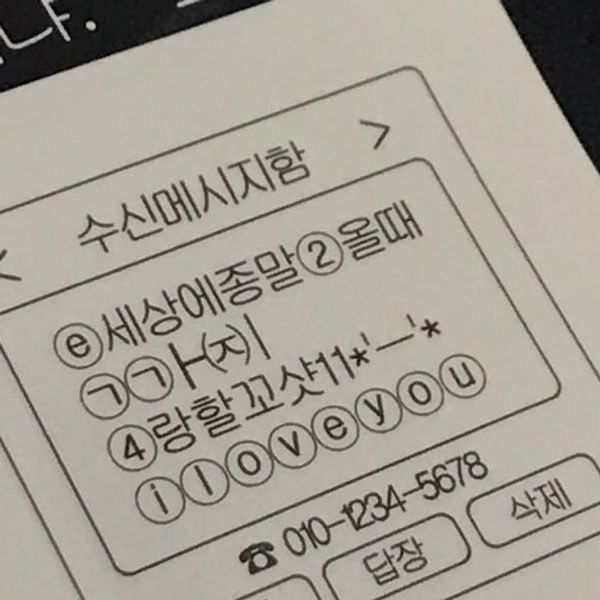 냐.
< 수신메시지함 >
ⓔ세상에종말②올때
㉠㉠ㅏ㈈ㅣ
④랑할꼬샷11*'ㅡ'*
ⓘⓛⓞⓥⓔⓨⓞⓤ
☎ 010-1234-5678
답장 삭제